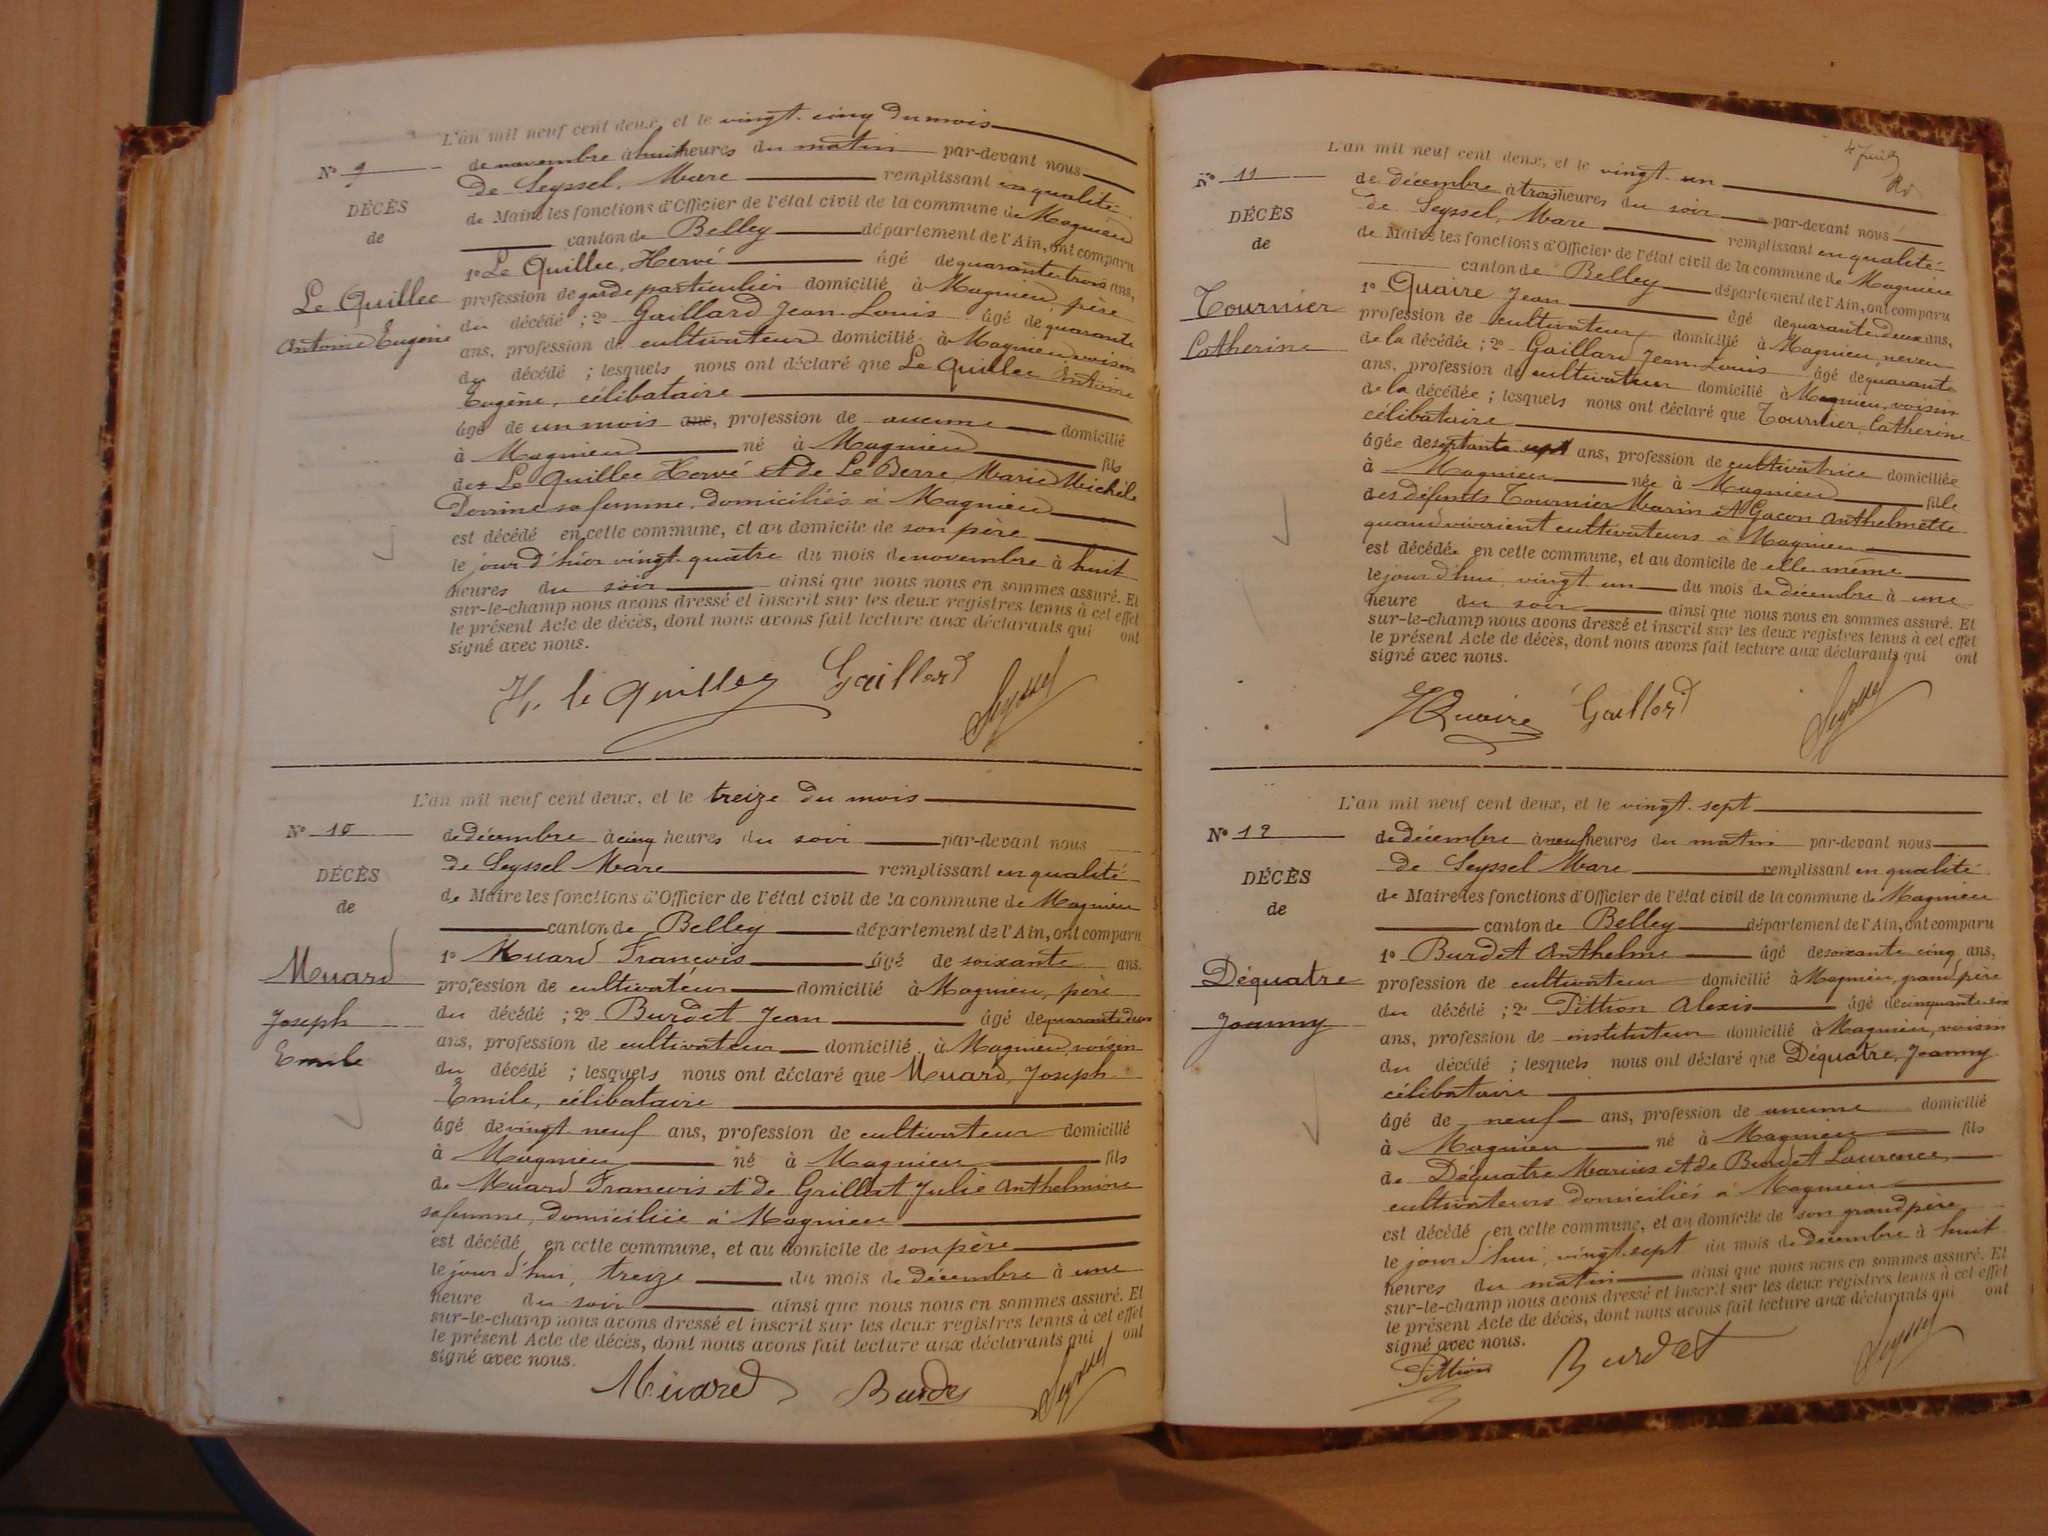 L'an mil neuf cent deux, et le vingt-cinq du mois
N° 9
de novembre à huit heures du matin par-devant nous
de Seyssel, Marc remplissant en qualité
DÉCÈS
de Maire les fonctions d'Officier de l'état civil de la commune de Magnieu
de
canton de Belley département de l'Ain, ont comparu
1° Le Quillec, Hervé âgé de quarante trois ans,
Le Quillec
profession de garde particulier domicilié à Magnieu, père
du décédé ; 2° Gaillard Jean-Louis âgé de quarante
Antoine Eugène
ans, profession de cultivateur domicilié à Magnieu, voisin
du décédé ; lesquels nous ont déclaré que Le Quillec Antoine
Eugène, célibataire
âgé de un mois ans, profession de aucune domicilié
à Magnieu né à Magnieu fils
des Le Quillec Hervé et de Le Berre Marie Michèle
Perrine sa femme, domiciliés à Magnieu
est décédé en cette commune, et au domicile de son père
le jour d'hier vingt-quatre du mois de novembre à huit
heures du soir ainsi que nous nous en sommes assuré. Et
sur-le-champ nous avons dressé et inscrit sur les deux registres tenus à cet effet
le présent Acte de décès, dont nous avons fait lecture aux déclarants qui ont
signé avec nous.
H. le Quillec Gaillard Seyssel
L'an mil neuf cent deux, et le treize du mois
N° 10
de décembre à cinq heures du soir par-devant nous
de Seyssel Marc remplissant en qualité
DÉCÈS
de Maire les fonctions d'Officier de l'état civil de la commune de Magnieu
de
canton de Belley département de l'Ain, ont comparu
1° Muard François âgé de soixante ans.
Muard
profession de cultivateur domicilié à Magnieu, père
du décédé ; 2° Burdet Jean âgé de quarante deux
Joseph
ans, profession de cultivateur domicilié à Magnieu, voisin
Emile
du décédé ; lesquels nous ont déclaré que Muard, Joseph
Emile, célibataire
âgé de vingt neuf ans, profession de cultivateur domicilié
à Magnieu né à Magnieu fils
de Muard François et de Grillet Julie Anthelmine
sa femme, domiciliée à Magnieu
est décédé en cette commune, et au domicile de son père
le jour d'hui, treize du mois de décembre à une
heure du soir ainsi que nous nous en sommes assuré. Et
sur-le-champ nous avons dressé et inscrit sur les deux registres tenus à cet effet
le présent Acte de décès, dont nous avons fait lecture aux déclarants qui ont
signé avec nous.
Muard Burdet Seyssel
L'an mil neuf cent deux, et le vingt-un
N° 11
de décembre à trois heures du soir par-devant nous
de Seyssel, Marc remplissant en qualité
DÉCÈS
de Maire les fonctions d'Officier de l'état civil de la commune de Magnieu
de
canton de Belley département de l'Ain, ont comparu
1° Quaire Jean âgé de quarante deux ans,
Tournier
profession de cultivateur domicilié à Magnieu, neveu
de la décédée ; 2° Gaillard Jean-Louis âgé de quarante
Catherine
ans, profession de cultivateur domicilié à Magnieu, voisin
de la décédée ; lesquels nous ont déclaré que Tournier, Catherine
célibataire
âgée de septante sept ans, profession de cultivatrice domiciliée
à Magnieu née à Magnieu fille
des défunts Tournier Marin et Gacon Anthelmette
quand vivaient cultivateurs à Magnieu
est décédée en cette commune, et au domicile de elle même
le jour d'hui, vingt-un du mois de décembre à une
heure du soir ainsi que nous nous en sommes assuré. Et
sur-le-champ nous avons dressé et inscrit sur les deux registres tenus à cet effet
le présent Acte de décès, dont nous avons fait lecture aux déclarants qui ont
signé avec nous.
JQuaire Gaillard Seyssel
L'an mil neuf cent deux, et le vingt-sept
N° 12
de décembre à neuf heures du matin par-devant nous
de Seyssel Marc remplissant en qualité
DÉCÈS
de Maire les fonctions d'Officier de l'état civil de la commune de Magnieu
de
canton de Belley département de l'Ain, ont comparu
1° Burdet Anthelme âgé de soixante cinq ans,
Déquatre
profession de cultivateur domicilié à Magnieu, grand père
du décédé ; 2° Pittion Alexis âgé de cinquante six
Joanny
ans, profession de instituteur domicilié à Magnieu, voisin
du décédé ; lesquels nous ont déclaré que Déquatre, Joanny
célibataire
âgé de neuf ans, profession de aucune domicilié
à Magnieu né à Magnieu fils
de Déquatre Marius et de Burdet Laurence,
cultivateurs domiciliés à Magnieu
est décédé en cette commune, et au domicile de son grand père
le jour d'hui, vingt-sept du mois de décembre à huit
heures du matin ainsi que nous nous en sommes assuré. Et
sur-le-champ nous avons dressé et inscrit sur les deux registres tenus à cet effet
le présent Acte de décès, dont nous avons fait lecture aux déclarants qui ont
signé avec nous.
Pittion Burdet Seyssel